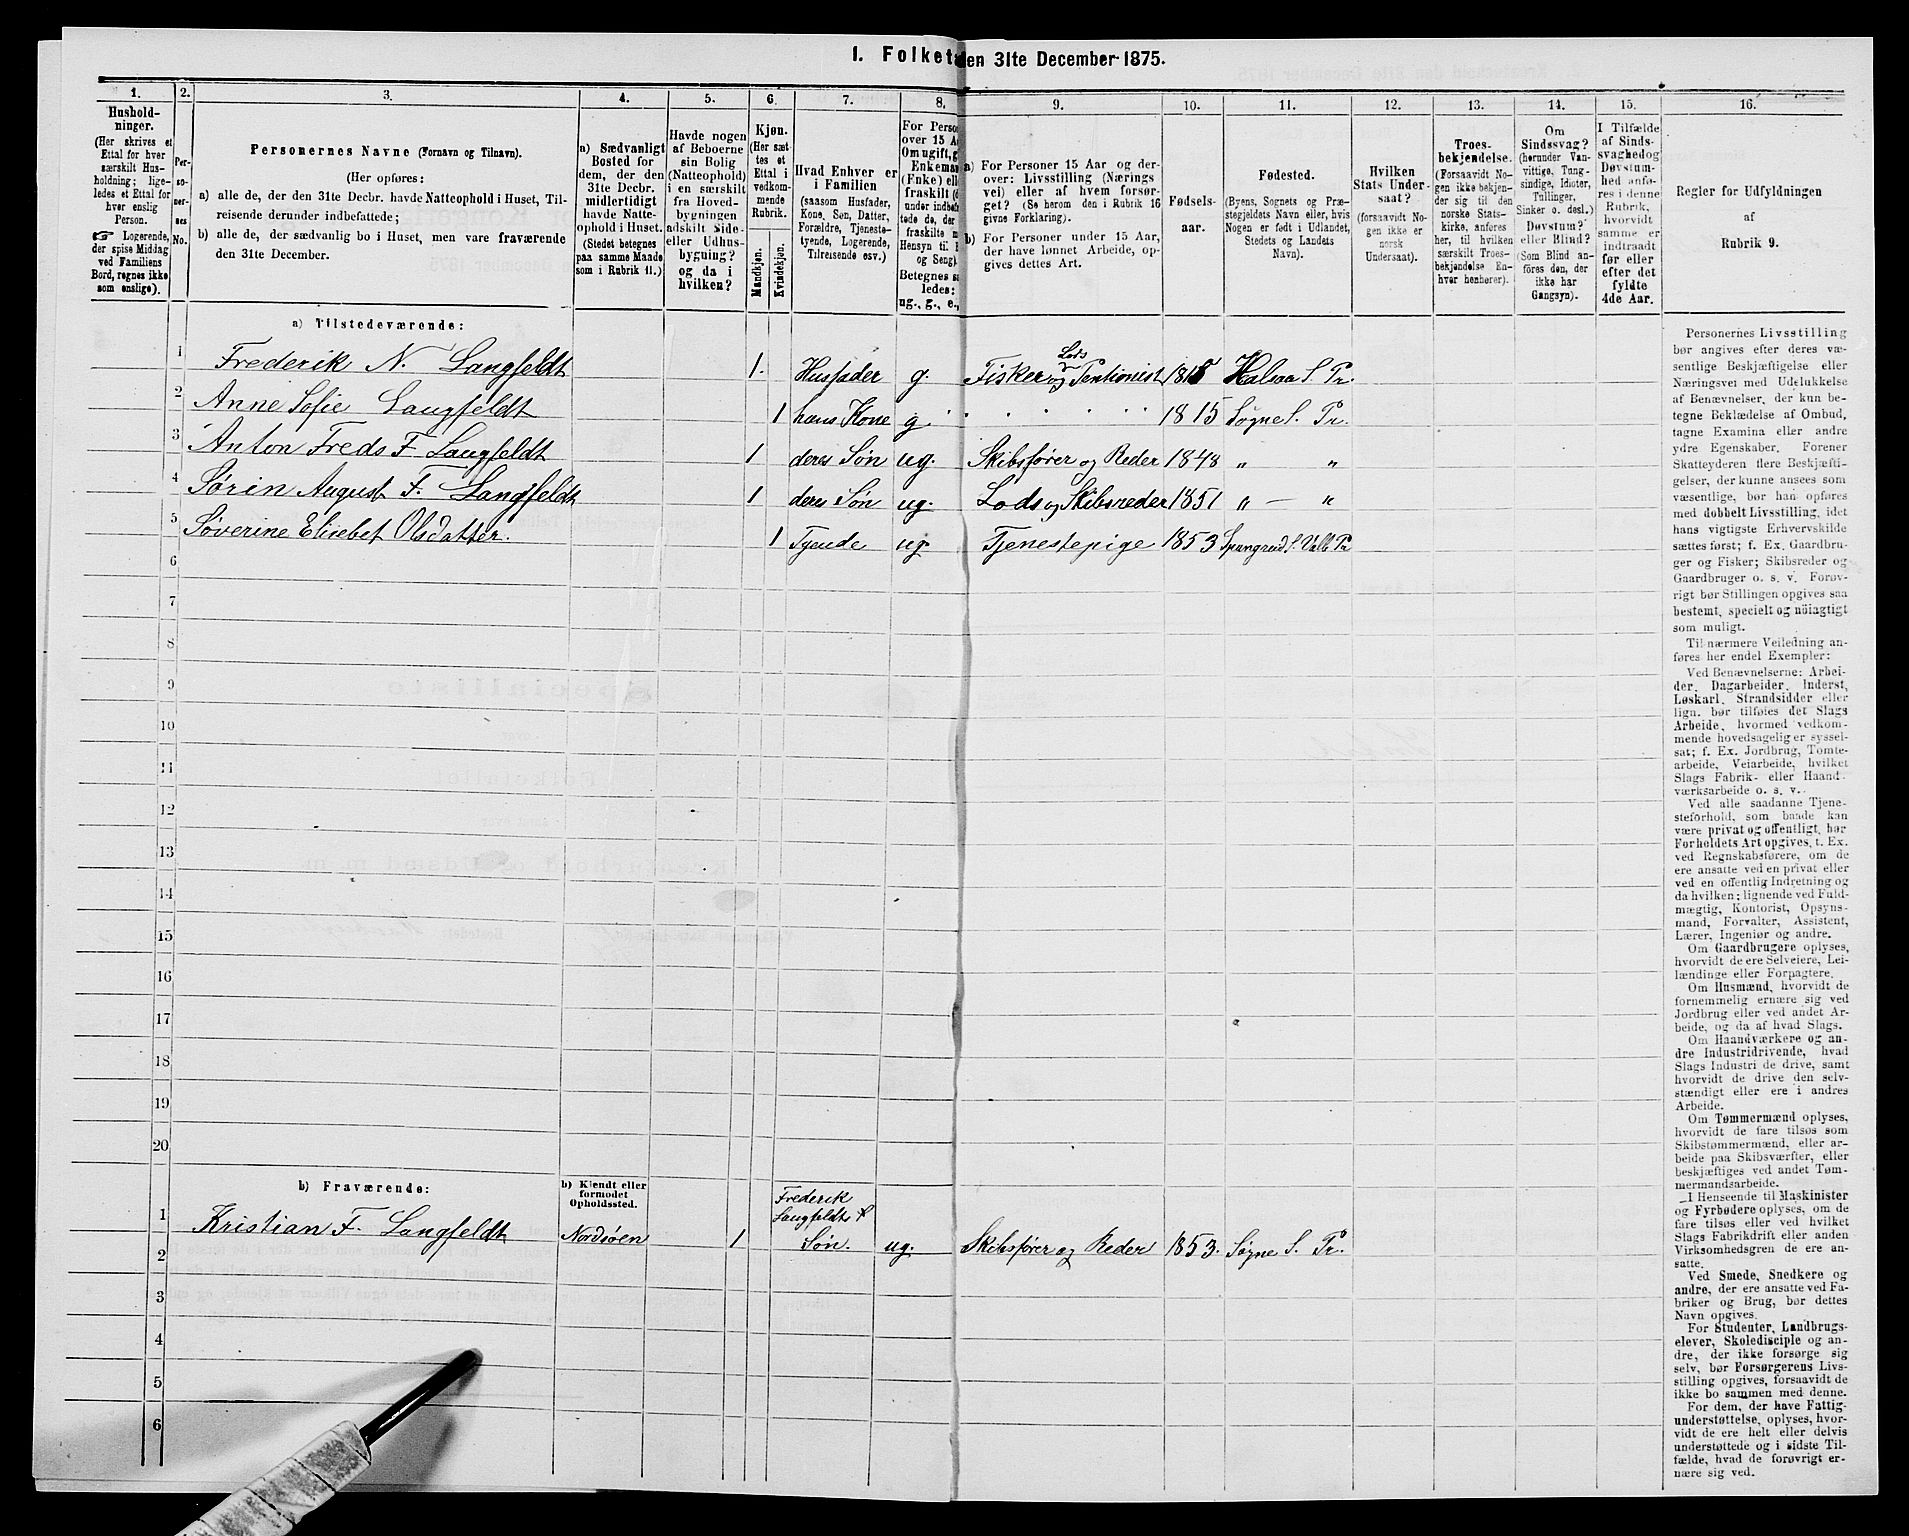 1. Folket den 31te December 1875.
1. 2. 3. 4. 5. 6. 7. 8. 9. 10. 11. 12. 13. 14. 15. 16.
Hushold-
ninger.
(Her skrives et
Ettal for hver
særskilt Hus-
holdning; lige-
ledes et Ettal for
hver enslig
Person.
☞ Logerende,
der spise Middag
ved Familiens
Bord, regnes ikke
som enslige).
Per-
so-
ner-
nes
No.
Personernes Navne (Fornavn og Tilnavn).
(Her opføres:
a) alle de, der den 31te Decbr. havde Natteophold i Huset, Til-
reisende derunder indbefattede;
b) alle de, der sædvanlig bo i Huset, men vare fraværende
den 31te December.
a) Sædvanligt
Bosted for
dem, der den
31te Decbr.
midlertidigt
havde Natte-
ophold i Huset.
(Stedet betegnes
paa samme Maade
som i Rubrik 11.)
Havde nogen
af Beboerne
sin Bolig
(Natteophold)
i en særskilt
fra Hoved-
bygningen
adskilt Side-
eller Udhus-
bygning?
og da i
hvilken?
Kjøn.
(Her sæt-
tes et
Ettal i
vedkom-
mende
Rubrik.
Mandkjøn.
Kvindekjøn.
Hvad Enhver er
i Familien
(saasom Husfader,
Kone, Søn, Datter,
Forældre, Tjeneste-
tyende, Logerende,
Tilreisende osv.)
For Perso
over 15 A
Om ugift, g
Enkeman
(Enke) ell
fraskilt (
under indbe
tede de, de
fraskilte
Hensyn til
og Seng).
Betegnes s
ledes:
ug., g., e.,
a) For Personer 15 Aar og der-
over: Livsstilling (Nærings
vei) eller af hvem forsør-
get? (Se herom den i Rubrik 16
givne Forklaring).
b) For Personer under 15 Aar,
der have lønnet Arbeide, op-
gives dettes Art.
Fødsels-
aar.
Fødested.
(Byens, Sognets og Præ-
stegjeldets Navn eller, hvis
Nogen er født i Udlandet,
Stedets og Landets
Navn).
Hvilken
Stats Under-
saat?
(forsaavidt No-
gen ikke er
norsk
Undersaat).
Troes-
bekjendelse.
(Forsaavidt No-
gen ikke bekjen-
der sig til den
norske Stats-
kirke, anføres
her, til hvilken
særskilt Troes-
bekjendelse En-
hver henhører).
Om
Sindssvag?
(herunder Van-
vittige, Tung-
sindige, Idioter,
Tullinger,
Sinker o. desl.)
Døvstum?
eller Blind?
(Som Blind an-
føres den, der
ikke har
Gangsyn).
I Tilfælde
af Sinds-
svaghed og
Døvstum-
hed anfø-
res i denne
Rubrik,
hvorvidt
samme er
indtraadt
før eller
efter det
fyldte
4de Aar.
Regler for Udfyldningen
af
Rubrik 9.
a) Tilstedeværende:
1 Frederik N. Langfeldt 1. Husfader g. Fisker og Lods Pentionist 1815 Halsaa S. Pr.
2 Anne Sofie Langfeldt 1 hans Kone g. 1815 Søgne S. Pr.
3 Anton Freds F Langfeldt 1 deres Søn ug. Skibsfører og Reder 1848 „ „
4 Sørin August F. Langfeldt 1 deres Søn ug. Lods og Skibsreder 1851 „ — „
5 Søverine Elisebet Olsdatter. 1 Tyende ug. Tjenestepige 1853 S. Valle Pr
6
7
8
9
10
11
12
13
14
15
16
17
18
19
20
b) Fraværende:
b) Kjendt eller
formodet
Opholdssted.
1 Kristian F. Langfeldt Nordsøen 1 Frederik Langfeldts Søn. ug. Skibsfører og Reder 1853. Søgne S. Pr.
2
3
4
5
6
Personernes Livsstilling
bør angives efter deres væ-
sentlige Beskjæftigelse eller
Næringsvei med Udelukkelse
af Benævnelser, der kun be-
tegne Beklædelse af Ombud,
tagne Examina eller andre
ydre Egenskaber. Forener
Skatteyderen flere Beskjæfti-
gelser, der kunne ansees som
væsentlige, bør han opføres
med dobbelt Livsstilling, idet
hans vigtigste Erhvervskilde
sættes først; f. Ex. Gaardbru-
ger og Fisker; Skibsreder og
Gaardbruger o. s. v. Forøv-
rigt bør Stillingen opgives saa
bestemt, specielt og nöiagtigt
som muligt.
Til nærmere Veiledning an-
føres her endel Exempler:
Ved Benævnelserne: Arbei-
der, Dagarbeider, Inderst,
Løskarl, Strandsidder eller
lign. bør tilføies det Slags
Arbeide, hvormed vedkom-
mende hovedsagelig er syssel-
sat; f. Ex. Jordbrug, Tomte-
arbeide, Veiarbeide, hvilket
Slags Fabrik- eller Haand-
værksarbeide o. s. v.
Ved alle saadanne Tjene-
steforhold, som baade kan
være privat og offentligt, bør
Forholdets Art opgives, f. Ex.
ved Regnskabsførere, om de
ere ansatte ved en privat eller
ved en offentlig Indretning og
da hvilken; lignende ved Fuld-
mægtig, Kontorist, Opsyns-
mand, Forvalter, Assistent,
Lærer, Ingeniør og andre.
Om Gaardbrugere oplyses,
hvorvidt de ere Selveiere, Lei-
lændinge eller Forpagtere.
Om Husmænd, hvorvidt de
fornemmelig ernære sig ved
Jordbrug eller ved andet Ar-
beide, og da af hvad Slags.
Om Haandværkere og an-
dre Industridrivende, hvad
Slags Industri de drive, samt
hvorvidt de drive den selv-
stændigt eller ere i andres
Arbeide.
Om Tømmermænd oplyses,
hvorvidt de fare tilsøs som
Skibstømmermænd, eller ar-
beide paa Skibsværfter, eller
beskjæftiges ved andet Tøm-
mermandsarbeide.
I Henseende til Maskinister
og Fyrbødere oplyses, om de
fare tilsøs eller ved hvilket
Slags Fabrikdrift eller anden
Virksomhedsgren de ere an-
satte.
Ved Smede, Snedkere og
andre, der ere ansatte ved Fa-
briker og Brug, bør dettes
Navn opgives.
For Studenter, Landbrugs-
elever, Skoledisciple og an-
dre, der ikke forsørge sig
selv, bør Forsørgerens Livs-
stilling opgives, forsaavidt de
ikke bo sammen med denne.
For dem, der have Fattig-
understøttelse, oplyses, hvor-
vidt de ere helt eller delvis
understøttede og i sidste Til-
fælde, hvad de forøvrigt er-
nære sig ved.